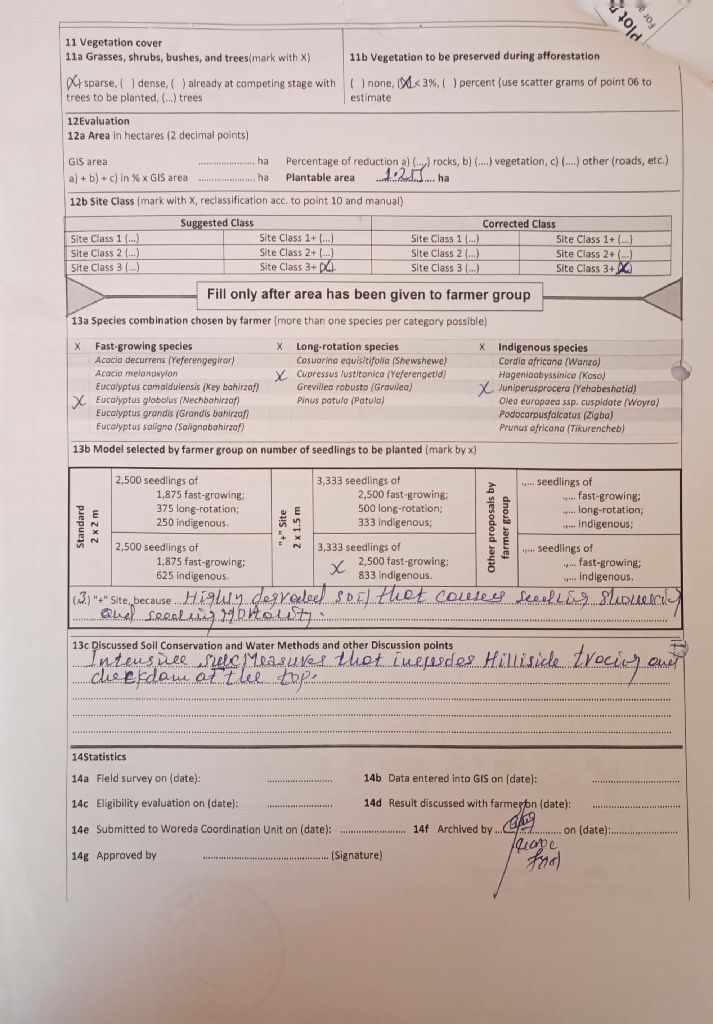 Plot
For a
11 Vegetation cover
11a Grasses, shrubs, bushes, and trees(mark with X)
11b Vegetation to be preserved during afforestation
(X) sparse, ( ) dense, ( ) already at competing stage with trees to be planted, (...) trees
( ) none, (X) < 3%, ( ) percent (use scatter grams of point 06 to estimate
12Evaluation
12a Area in hectares (2 decimal points)
GIS area .................... ha Percentage of reduction a) (....) rocks, b) (....) vegetation, c) (....) other (roads, etc.)
a) + b) + c) in % x GIS area .................... ha Plantable area ha
12b Site Class (mark with X, reclassification acc. to point 10 and manual)
Suggested Class Corrected Class
Site Class 1 (...) Site Class 1+ (...) Site Class 1 (...) Site Class 1+ (...)
Site Class 2 (...) Site Class 2+ (...) Site Class 2 (...) Site Class 2+ (...)
Site Class 3 (...) Site Class 3+ (X) Site Class 3 (...) Site Class 3+ (X)
Fill only after area has been given to farmer group
13a Species combination chosen by farmer (more than one species per category possible)
X Fast-growing species X Long-rotation species X Indigenous species
Acacia decurrens (Yeferengegirar) Casuarina equisitifolia (Shewshewe) Cordia africana (Wanza)
Acacia melanoxylon X Cupressus lustitanica (Yeferengetid) Hageniaabyssinica (Koso)
Eucalyptus camaldulensis (Key bahirzaf) Grevillea robusta (Gravilea) X Juniperusprocera (Yehabeshatid)
X Eucalyptus globolus (Nechbahirzaf) Pinus patula (Patula) Olea europaea ssp. cuspidate (Woyra)
Eucalyptus grandis (Grandis bahirzaf) Podocarpusfalcatus (Zigba)
Eucalyptus saligna (Salignabahirzaf) Prunus africana (Tikurencheb)
13b Model selected by farmer group on number of seedlings to be planted (mark by x)
Standard
2 x 2 m
2,500 seedlings of
1,875 fast-growing;
375 long-rotation;
250 indigenous.
2,500 seedlings of
1,875 fast-growing;
625 indigenous.
"+" Site
2 x 1.5 m
3,333 seedlings of
2,500 fast-growing;
500 long-rotation;
333 indigenous;
3,333 seedlings of
X 2,500 fast-growing;
833 indigenous.
Other proposals by
farmer group
.,... seedlings of
.,... fast-growing;
.,... long-rotation;
.,... indigenous;
.,... seedlings of
.,... fast-growing;
.,... indigenous.
(3) "+" Site, because Highly degraded soil that courses seedling
and seedling
13c Discussed Soil Conservation and Water Methods and other Discussion points
Measures that Hilliside and
checkdam at the top.
14Statistics
14a Field survey on (date): ....................... 14b Data entered into GIS on (date): .......................
14c Eligibility evaluation on (date): ....................... 14d Result discussed with farmer on (date): .......................
14e Submitted to Woreda Coordination Unit on (date): ....................... 14f Archived by ....................... on (date):.......................
14g Approved by ........................................... (Signature)